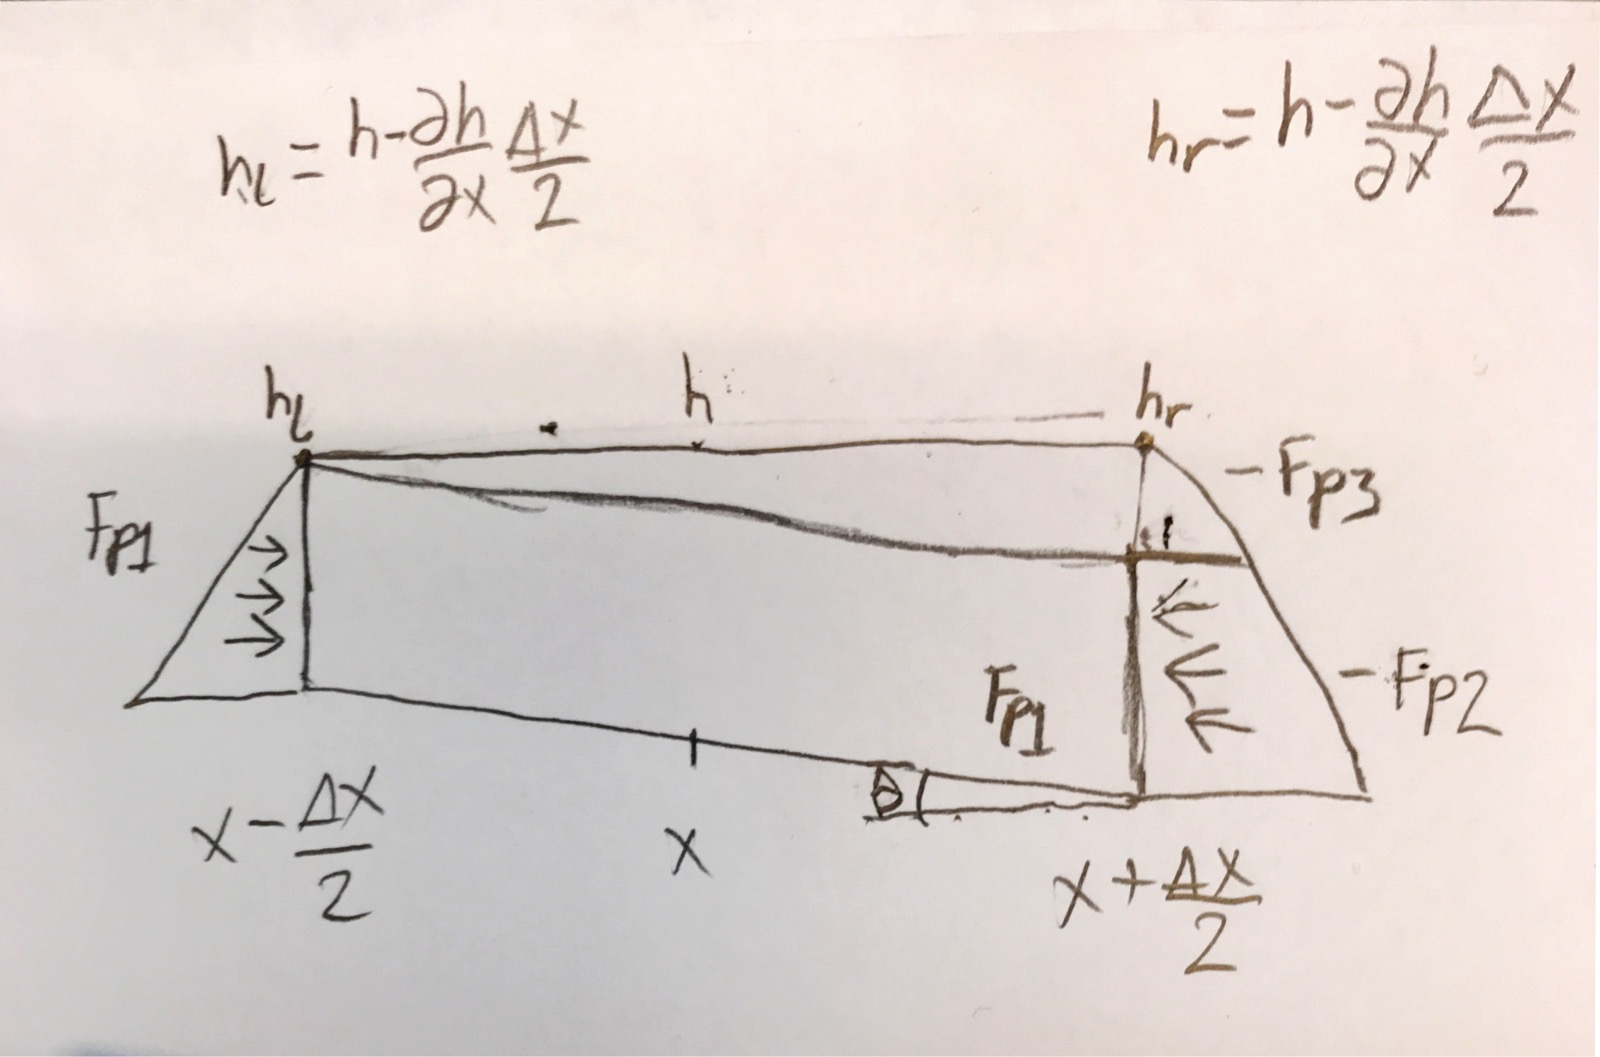 h_l = h - ∂h/∂x Δx/2
h_r = h - ∂h/∂x Δx/2
h_l
h
h_r
F_p1
-F_p3
F_p1
-F_p2
θ
x - Δx/2
x
x + Δx/2